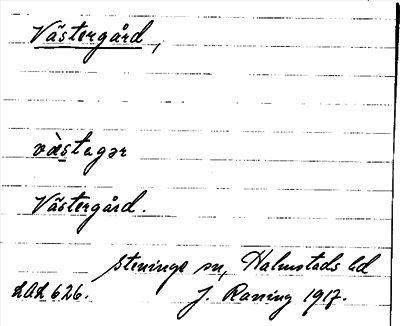 Västergård,
vä̀stagər
Västergård.
Steninge sn, Halmstads hd
LAL 626. J. Raning 1917.